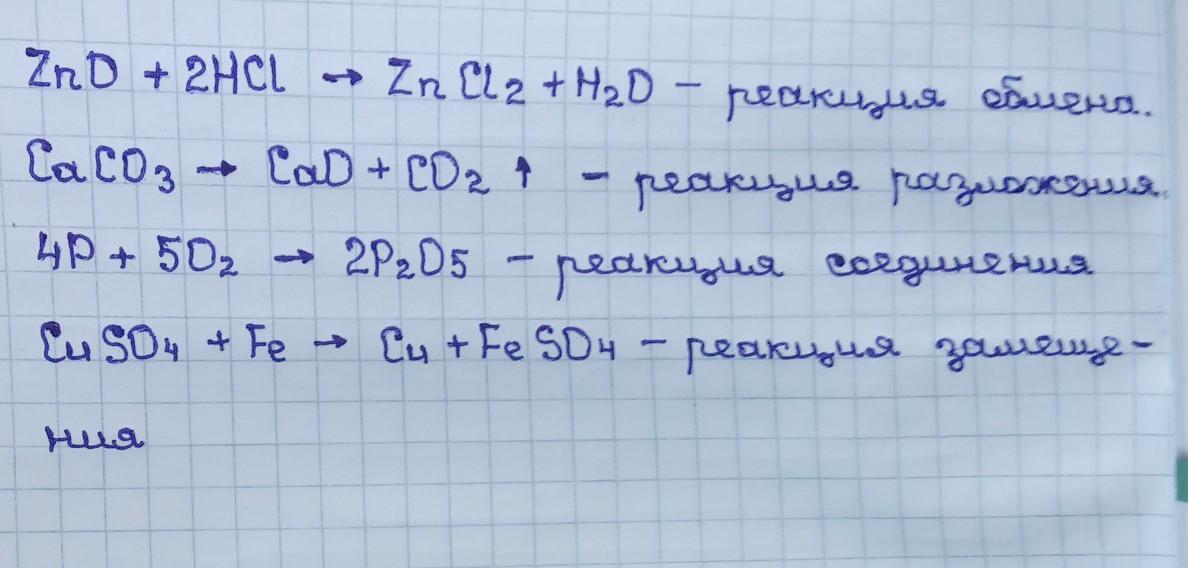 ZnO + 2HCl → ZnCl2 + H2O – реакция обмена.
CaCO3 → CaO + CO2 ↑ – реакция разложения.
4P + 5O2 → 2P2O5 – реакция соединения
CuSO4 + Fe → Cu + FeSO4 – реакция замеще-
ния